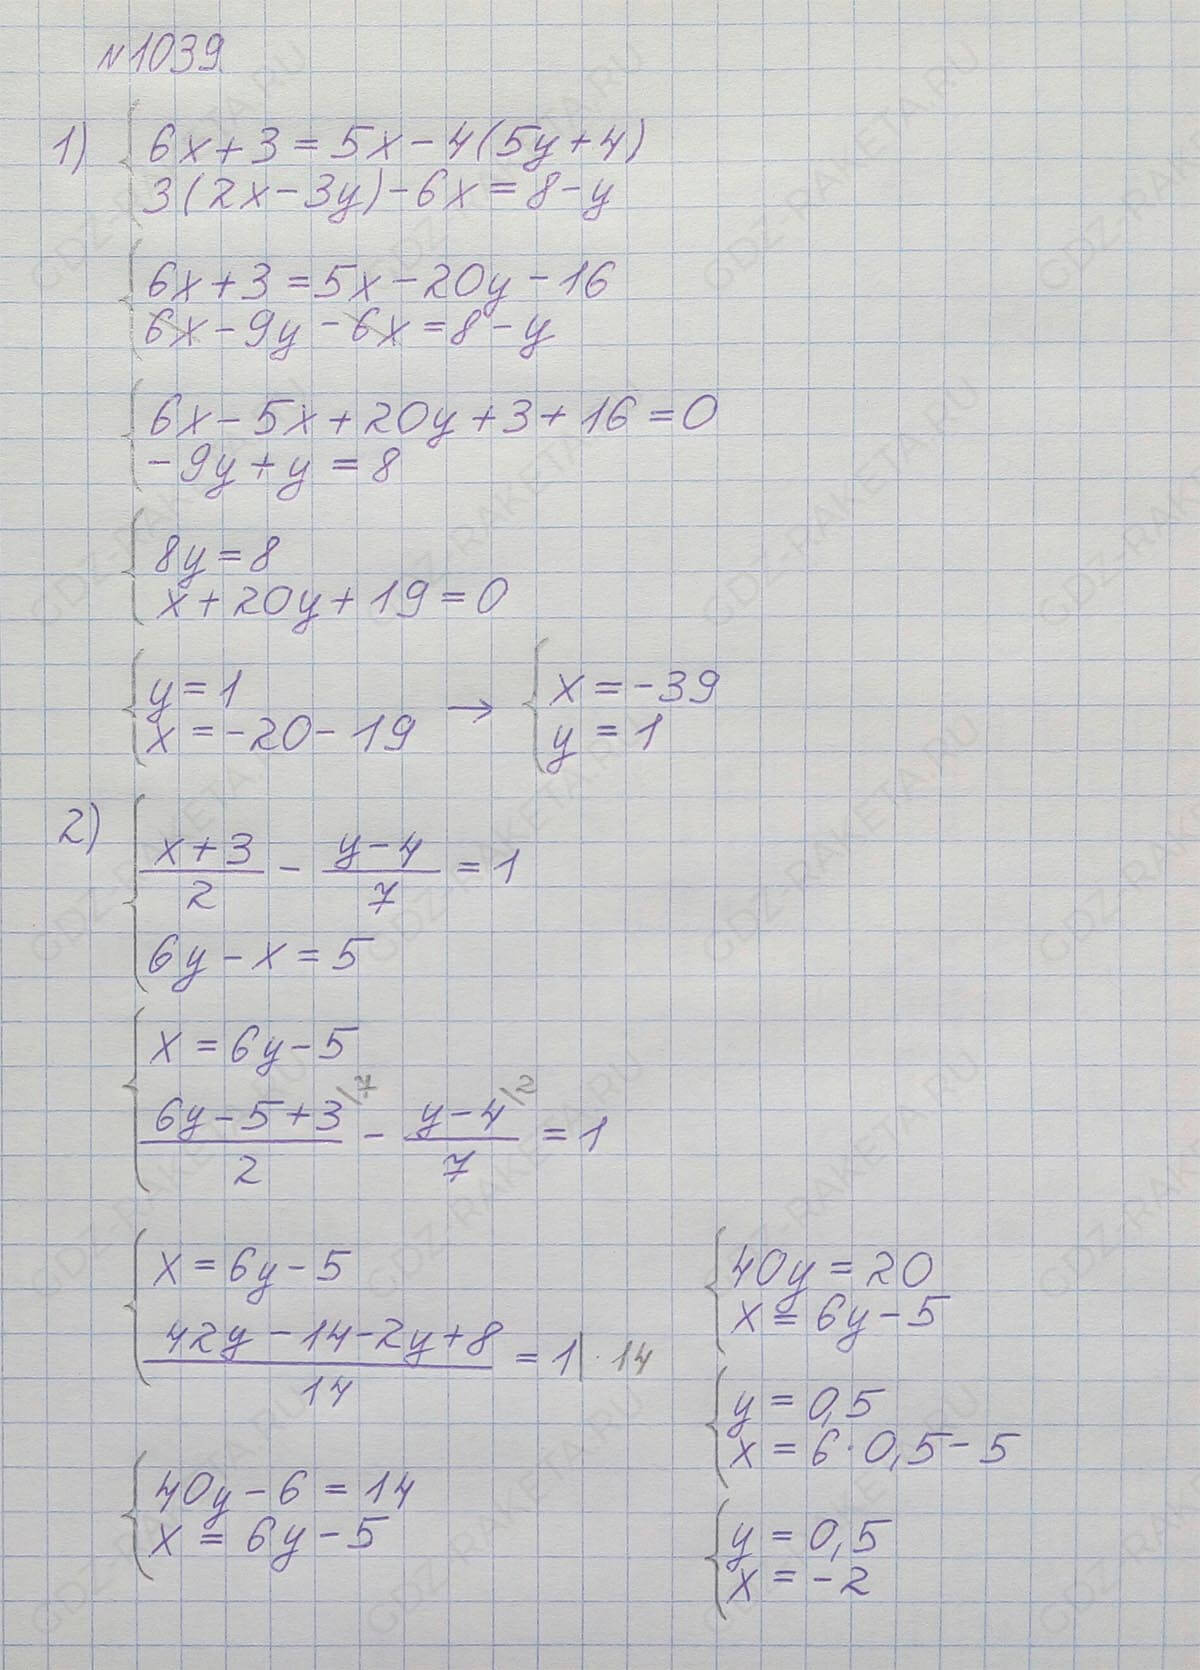 N1039
1) { 6x + 3 = 5x - 4(5y + 4)
3(2x - 3y) - 6x = 8 - y
{ 6x + 3 = 5x - 20y - 16
6x - 9y - 6x = 8 - y
{ 6x - 5x + 20y + 3 + 16 = 0
-9y + y = 8
{ 8y = 8
x + 20y + 19 = 0
{ y = 1
x = -20 - 19 → { x = -39
y = 1
2) { (x + 3)/2 - (y - 4)/7 = 1
6y - x = 5
{ x = 6y - 5
(6y - 5 + 3)/2 |7 - (y - 4)/7 |2 = 1
{ x = 6y - 5
(42y - 14 - 2y + 8)/14 = 1 | · 14
{ 40y - 6 = 14
x = 6y - 5
{ 40y = 20
x = 6y - 5
{ y = 0,5
x = 6 · 0,5 - 5
{ y = 0,5
x = -2
GDZ-RAKETA.RU